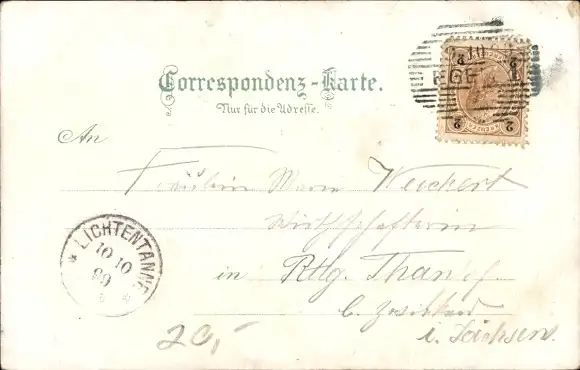 Correspondenz-Karte.
Nur für die Adresse.
An
Fräulein Marie Weickert
Wirthschafterin
in Rttg. Than
b. Zwickau
i. Sachsen.
LICHTENTANNE
10 10
99
EGE
10
2 2
2 2
20,-